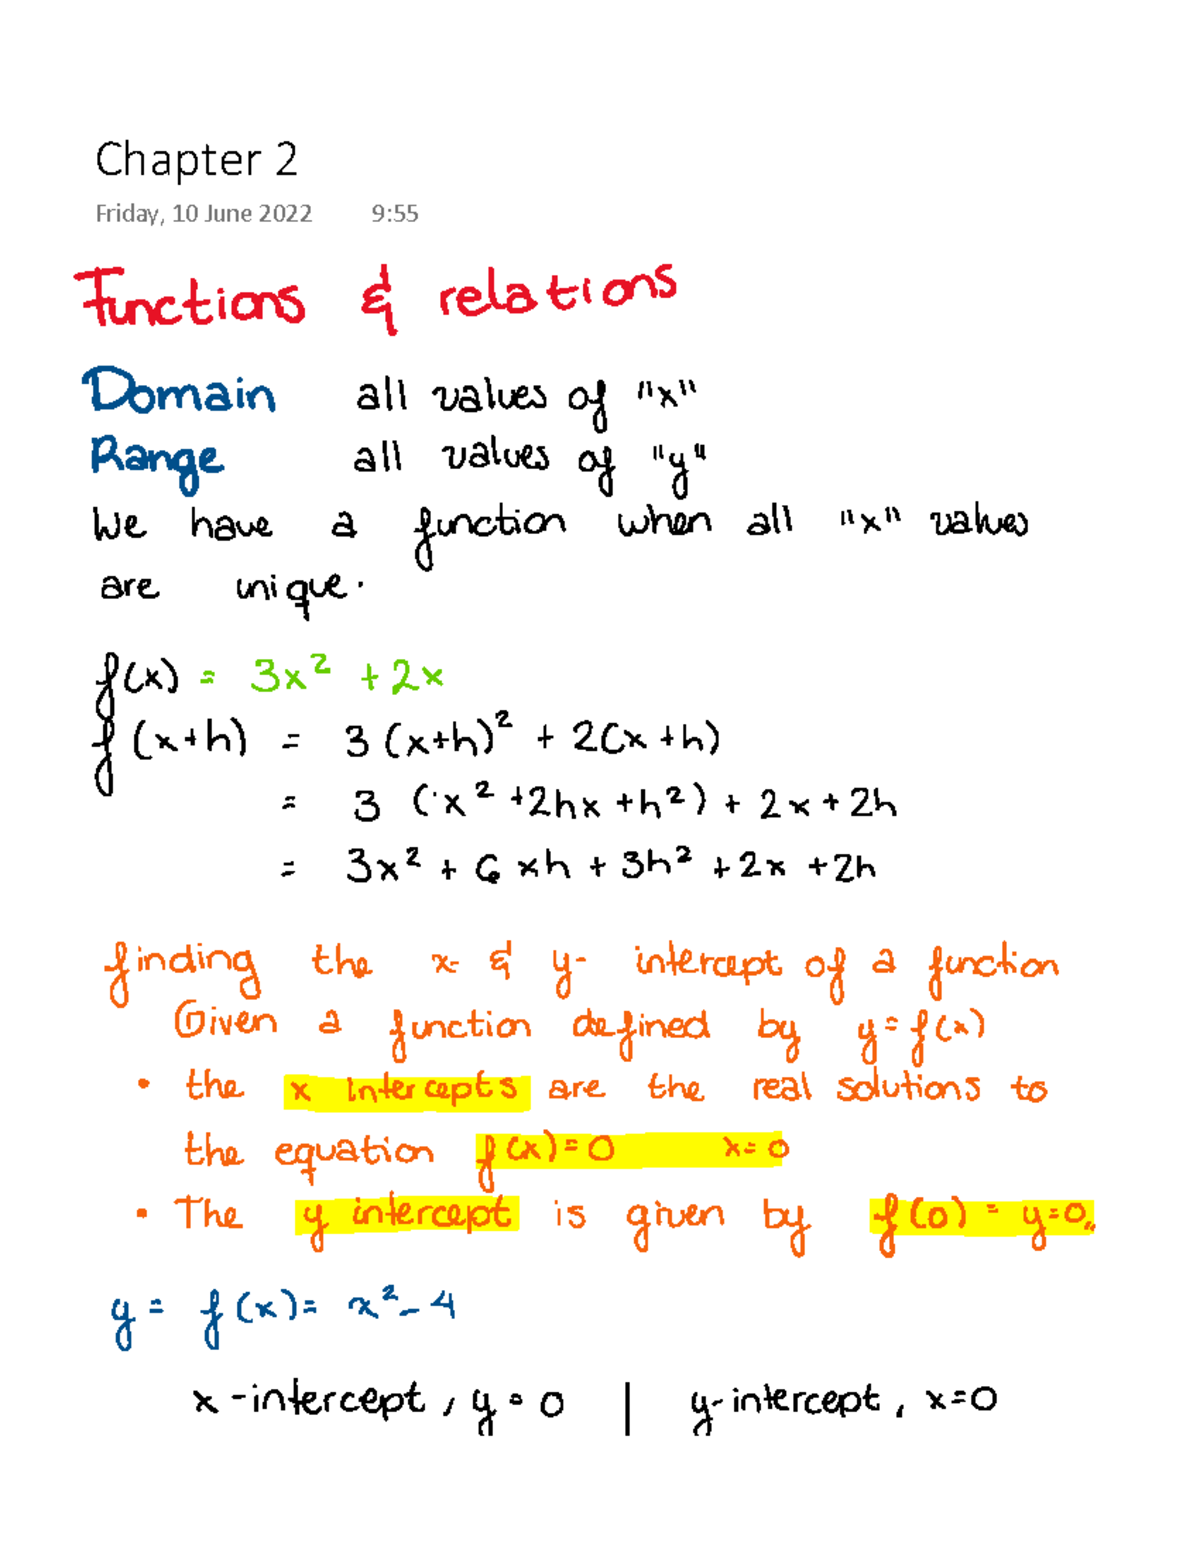 Chapter 2
Friday, 10 June 2022 9:55
Functions & relations
Domain all values of "x"
Range all values of "y"
We have a function when all "x" values
are unique.
f(x) = 3x² + 2x
f(x+h) = 3(x+h)² + 2(x+h)
= 3 (x² + 2hx + h²) + 2x + 2h
= 3x² + 6xh + 3h² + 2x + 2h
finding the x- & y- intercept of a function
Given a function defined by y = f(x)
• the x intercepts are the real solutions to
the equation f(x) = 0 x = 0
• The y intercept is given by f(0) = y=0,,
y = f(x) = x² - 4
x-intercept, y = 0 | y-intercept, x=0